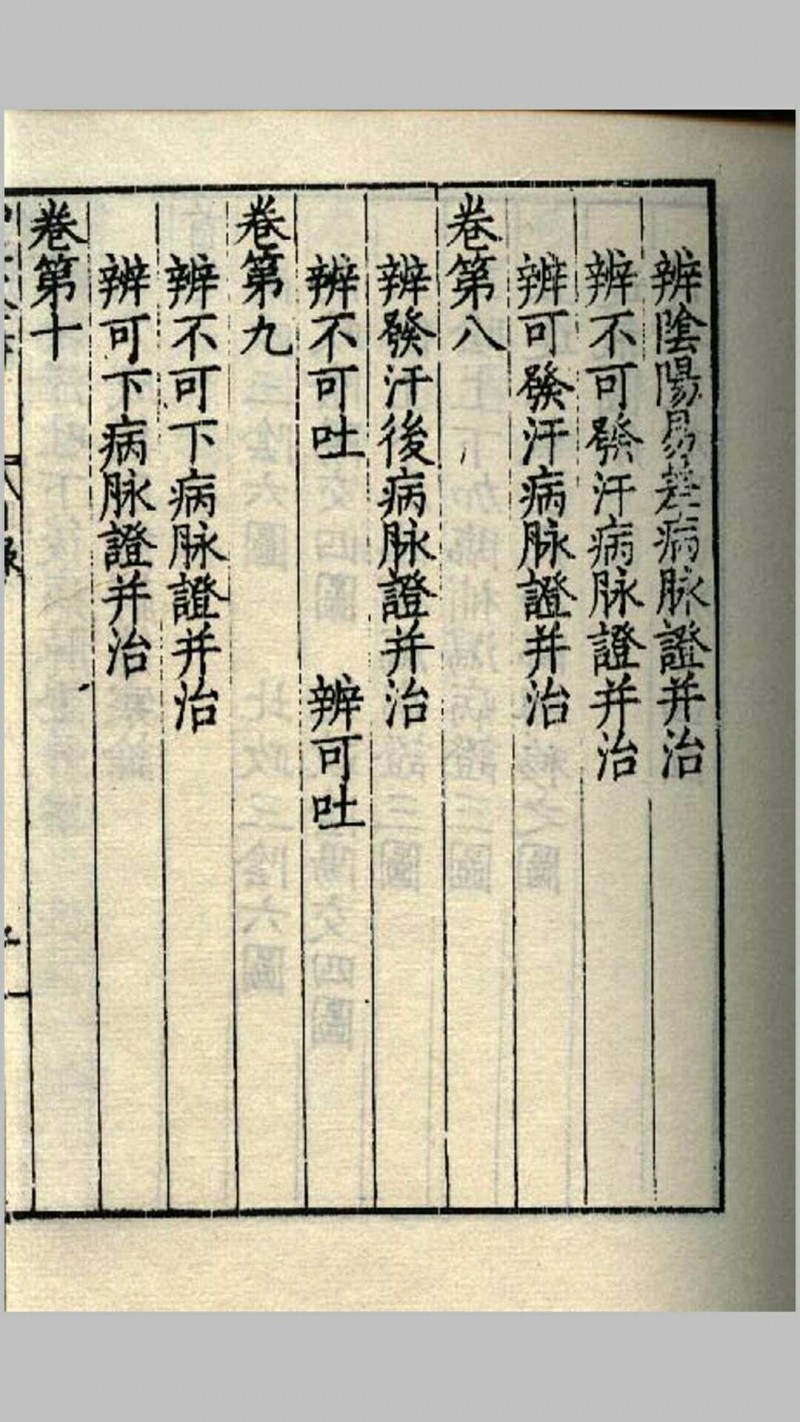 辨陰陽易差病脉證并治
辨不可發汗病脉證并治
辨可發汗病脉證并治
卷第八
辨發汗後病脉證并治
辨不可吐 辨可吐
卷第九
辨不可下病脉證并治
辨可下病脉證并治
卷第十